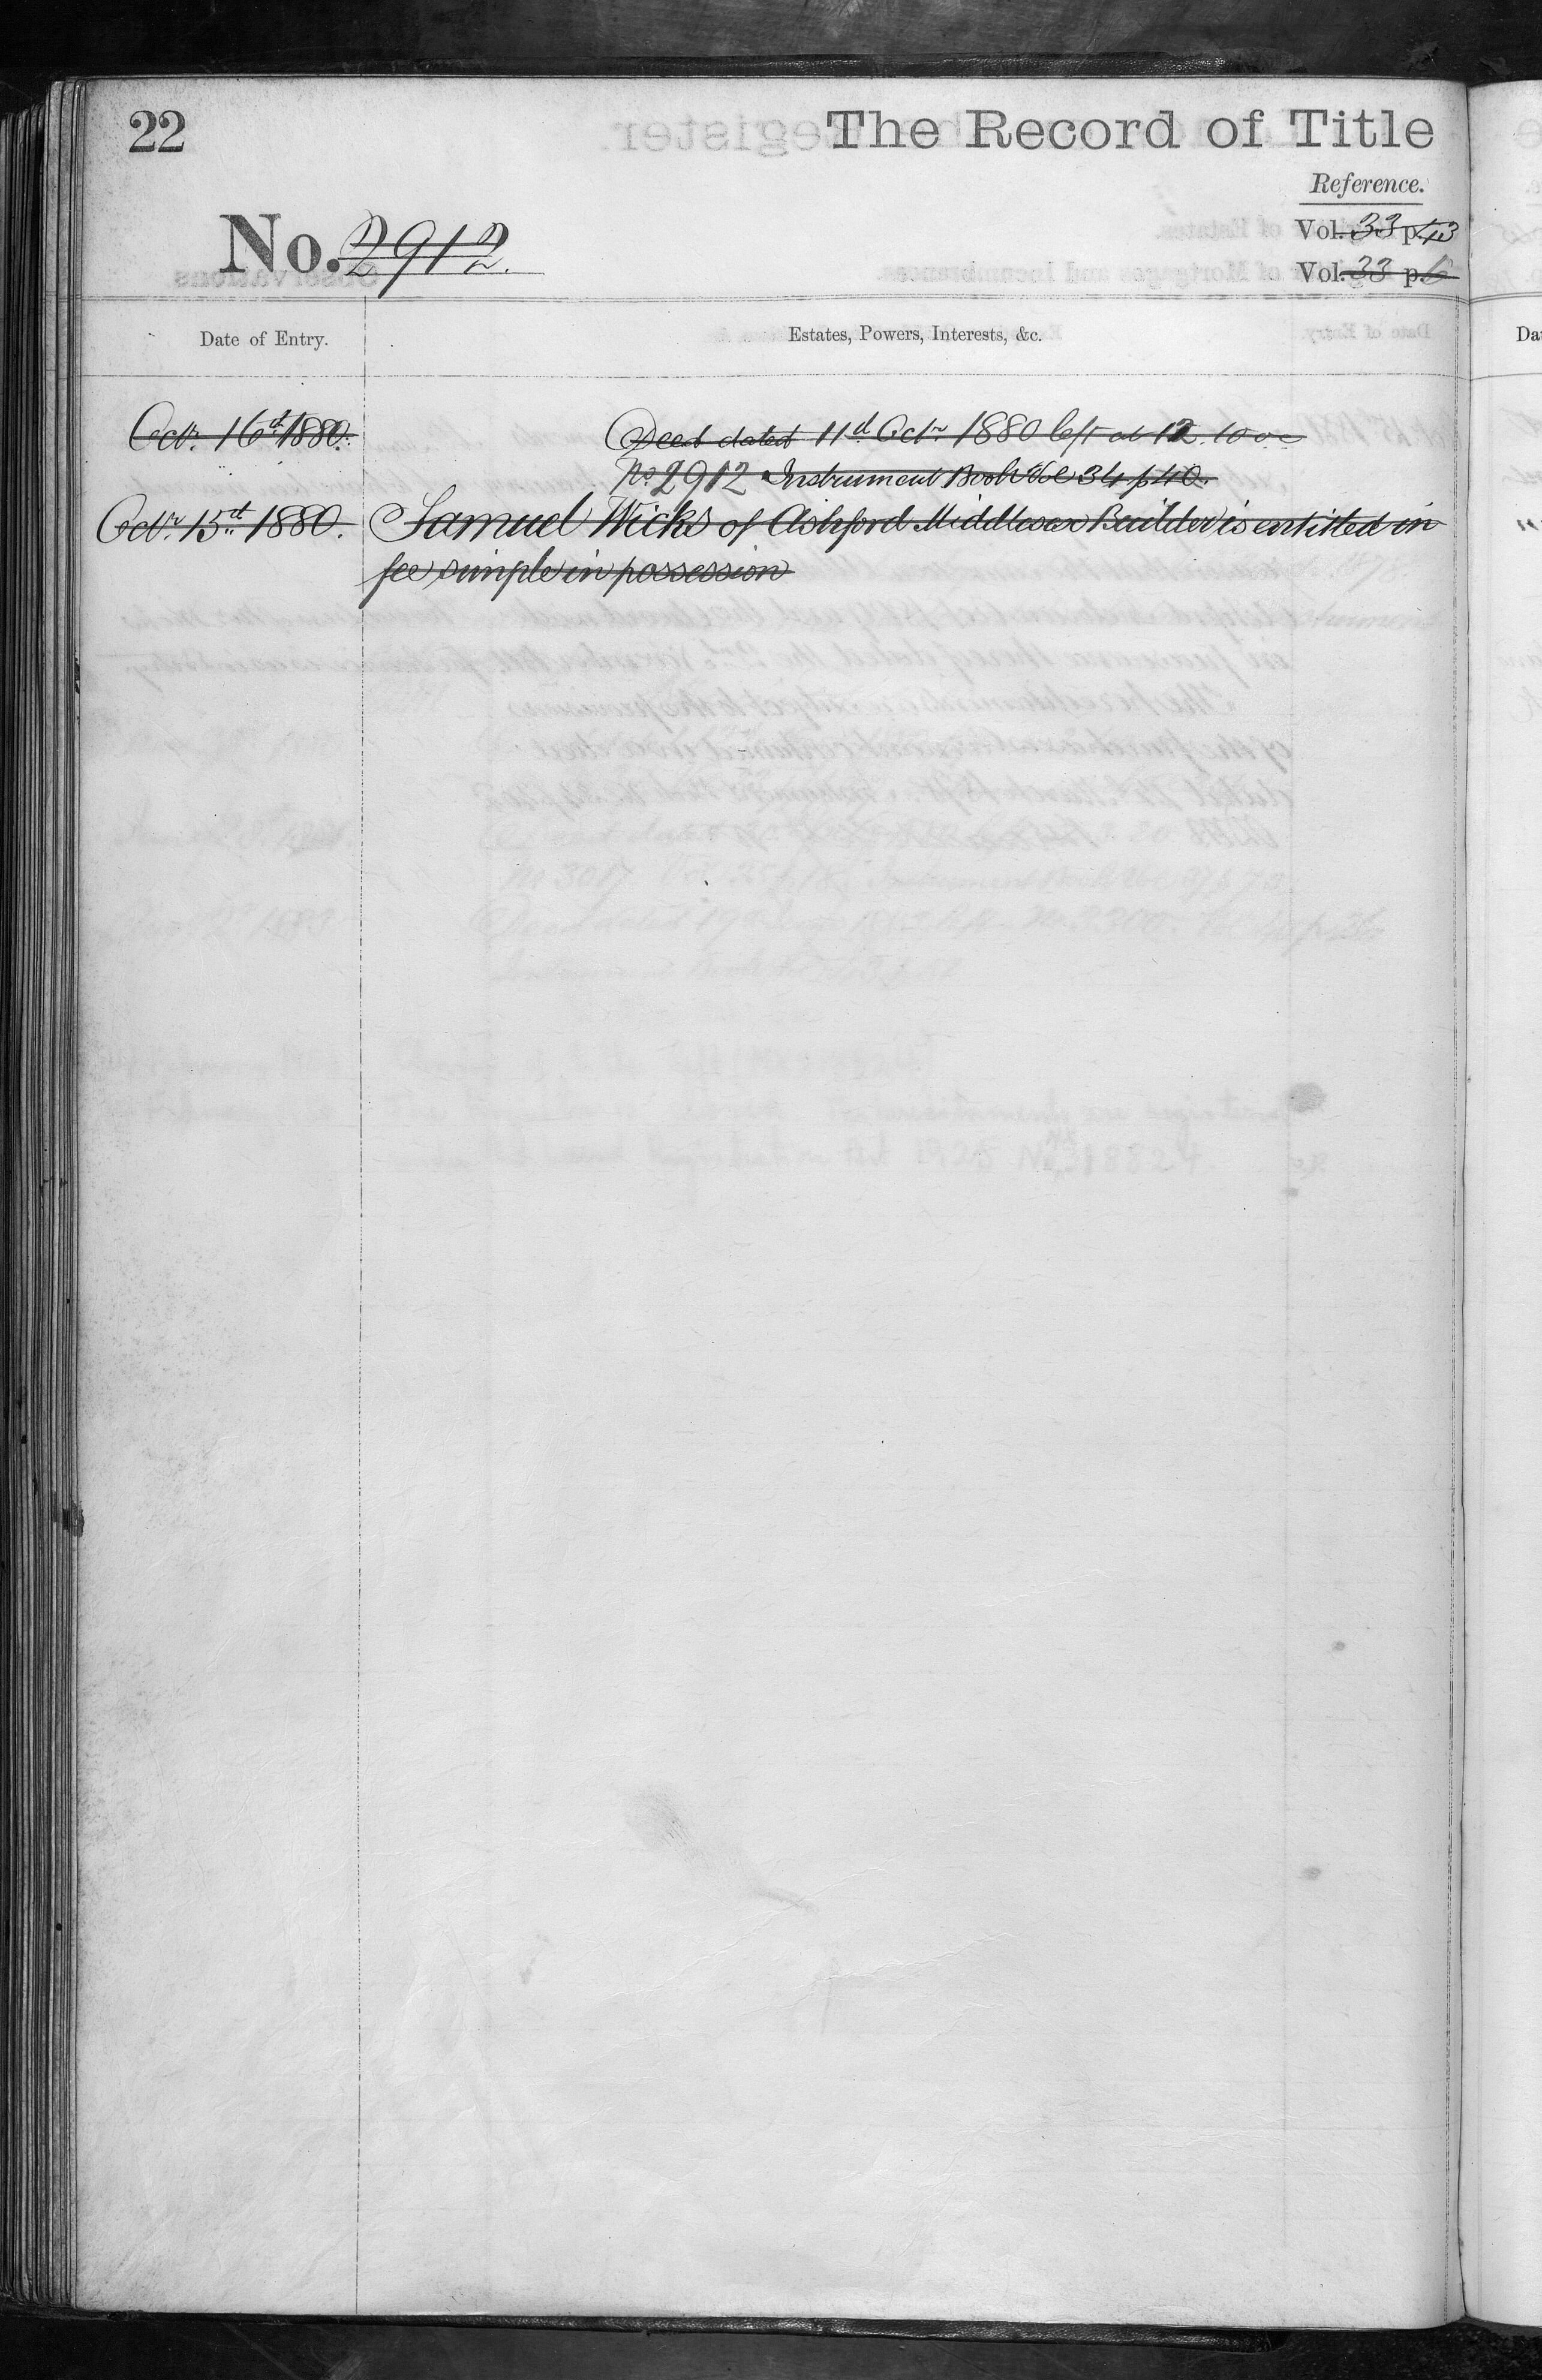 22
The Record of Title
Reference.
No. 2912.
Vol. 33 p. 43
Vol. 33 p. 6
Date of Entry.
Estates, Powers, Interests, &c.
Octr. 16th 1880.
Deed dated 11th Octr 1880 left at 12.10 oc
No 2912 Instrument Book Vol 34 p 40.
Octr 15th 1880.
Samuel Wicks of Ashford Middlesex Builder is entitled in
fee simple in possession